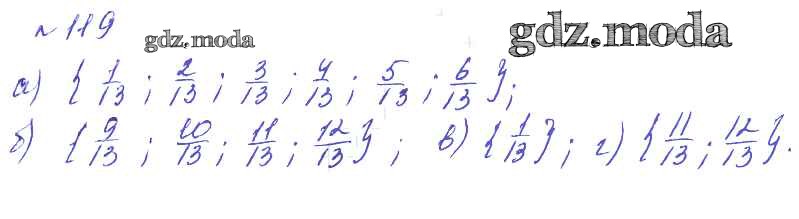 № 119
gdz.moda
gdz.moda
а) { 1/13 ; 2/13 ; 3/13 ; 4/13 ; 5/13 ; 6/13 };
б) { 9/13 ; 10/13 ; 11/13 ; 12/13 } ; в) { 1/13 } ; г) { 11/13 ; 12/13 }.